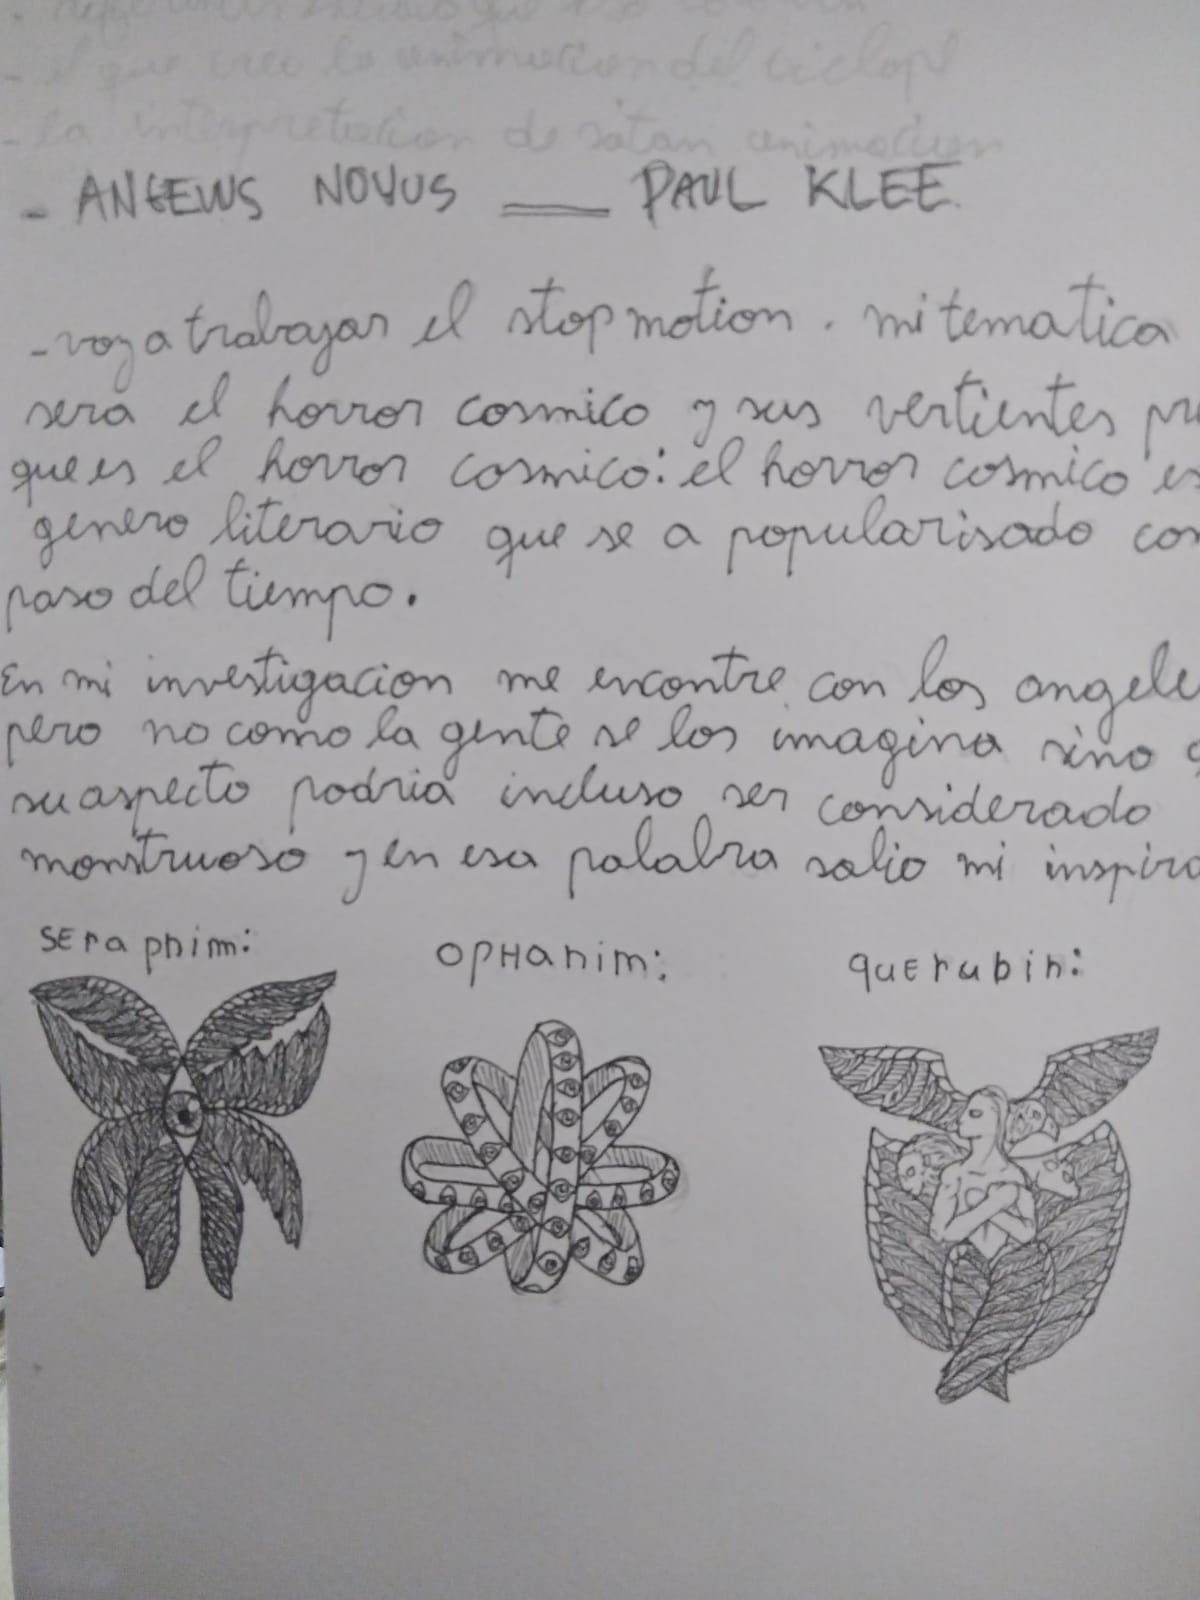 - el que creo la animacion del ciclope
- la interpretacion de satan animacion
- ANGELUS NOVUS — PAUL KLEE.
- voy a trabajar el stop motion. mi tematica
sera el horror cosmico y sus vertientes
que es el horror cosmico: el horror cosmico es
genero literario que se a popularisado con
paso del tiempo.
En mi investigacion me encontre con los angeles
pero no como la gente se los imagina sino
su aspecto podria incluso ser considerado
monstruoso y en esa palabra salio mi inspira
seraphim:
OPHanim:
querubin: